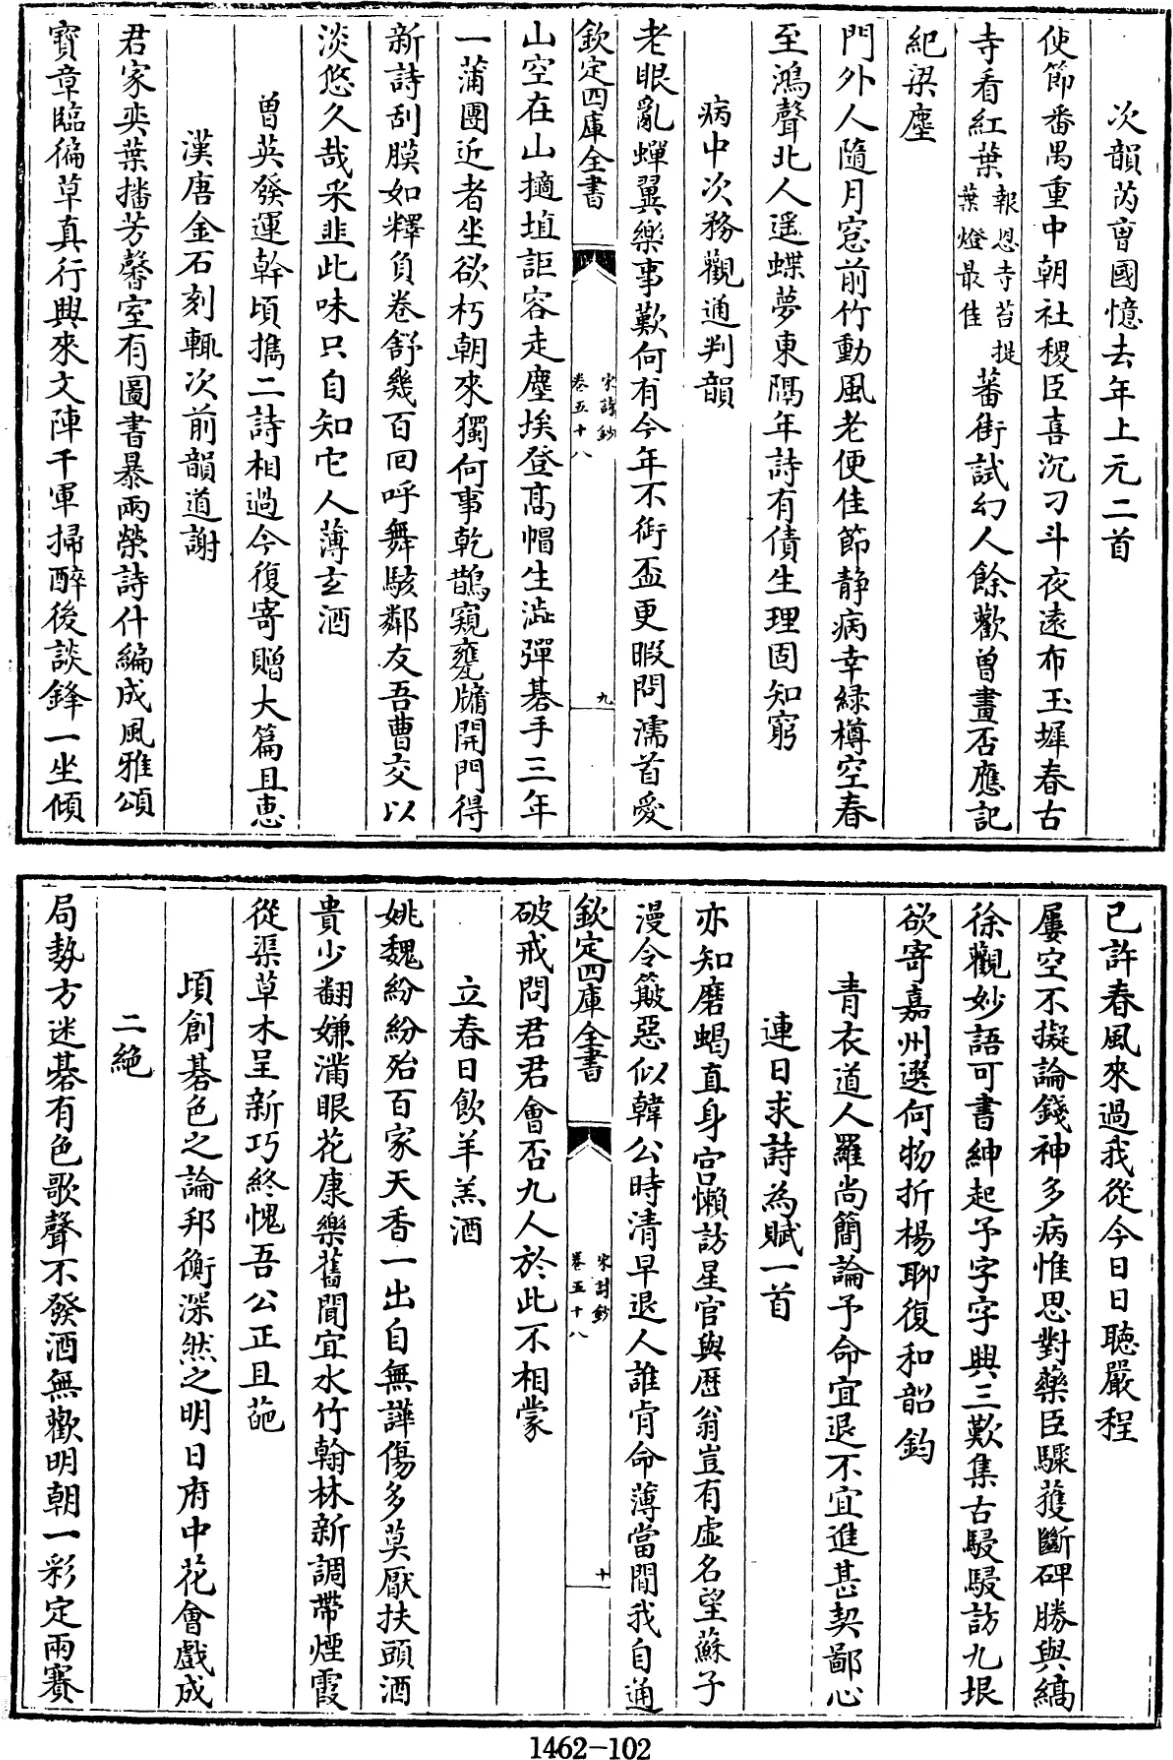 次韻芮曺國憶去年上元二首
使節番禺重中朝社稷臣喜沉刁斗夜遠布玉墀春古
寺看紅葉報恩寺苔提葉燈最佳蕃街試幻人餘歡曾畫否應記
紀梁塵
門外人隨月窓前竹動風老便佳節靜病幸緑樽空春
至鴻聲北人遥蝶夢東隔年詩有債生理固知窮
病中次務觀通判韻
老眼亂蟬翼樂事歎何有今年不銜盃更暇問濡首愛
欽定四庫全書
宋詩鈔
卷五十八
九
山空在山擿埴詎容走塵埃登髙帽生澁彈碁手三年
一蒲團近者坐欲朽朝來獨何事乾鵲窺甕牖開門得
新詩刮膜如釋負卷舒幾百回呼舞駭鄰友吾曹交以
淡悠久哉采韭此味只自知它人薄玄酒
曾英發運幹頃攜二詩相過今復寄贈大篇且惠
漢唐金石刻輒次前韻道謝
君家奕葉播芳馨室有圖書暴兩榮詩什編成風雅頌
寳章臨徧草真行興來文陣千軍掃醉後談鋒一坐傾
已許春風來過我從今日日聽嚴程
屢空不擬論錢神多病惟思對藥臣驟獲斷碑勝與縞
徐觀妙語可書紳起予字字與三歎集古駸駸訪九垠
欲寄嘉州選何物折楊聊復和韶鈞
青衣道人羅尚簡論予命宜退不宜進甚契鄙心
連日求詩為賦一首
亦知磨蝎直身宫懶訪星官與厯翁豈有虛名望蘇子
漫令簸惡似韓公時清早退人誰肯命薄當閒我自通
欽定四庫全書
宋詩鈔
卷五十八
十
破戒問君君會否九人於此不相蒙
立春日飲羊羔酒
姚魏紛紛殆百家天香一出自無譁傷多莫厭扶頭酒
貴少翻嫌滿眼花康樂舊間宜水竹翰林新調帶煙霞
從渠草木呈新巧終愧吾公正且葩
頃創碁色之論邦衡深然之明日府中花會戲成
二絶
局勢方迷碁有色歌聲不發酒無歡明朝一彩定兩賽
1462-102